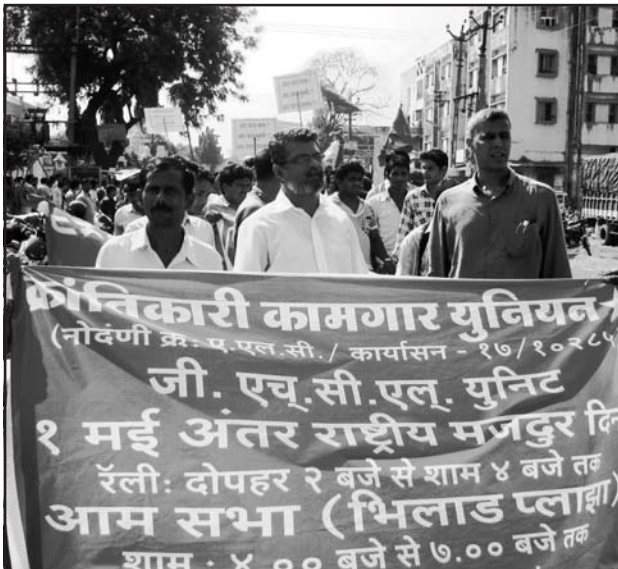 क्रांतिकारी कामगार युनियन
(नोदंणी क्रः ए.एल.सी./ कार्यासन - १७/१०२८५
जी. एच्.सी.एल्. युनिट
१ मई अंतर राष्ट्रीय मजदुर दिन
रॅलीः दोपहर २ बजे से शाम ४ बजे तक
आम सभा (भिलाड प्लाझा)
शाम : ४.०० बजे से ७.०० बजे तक